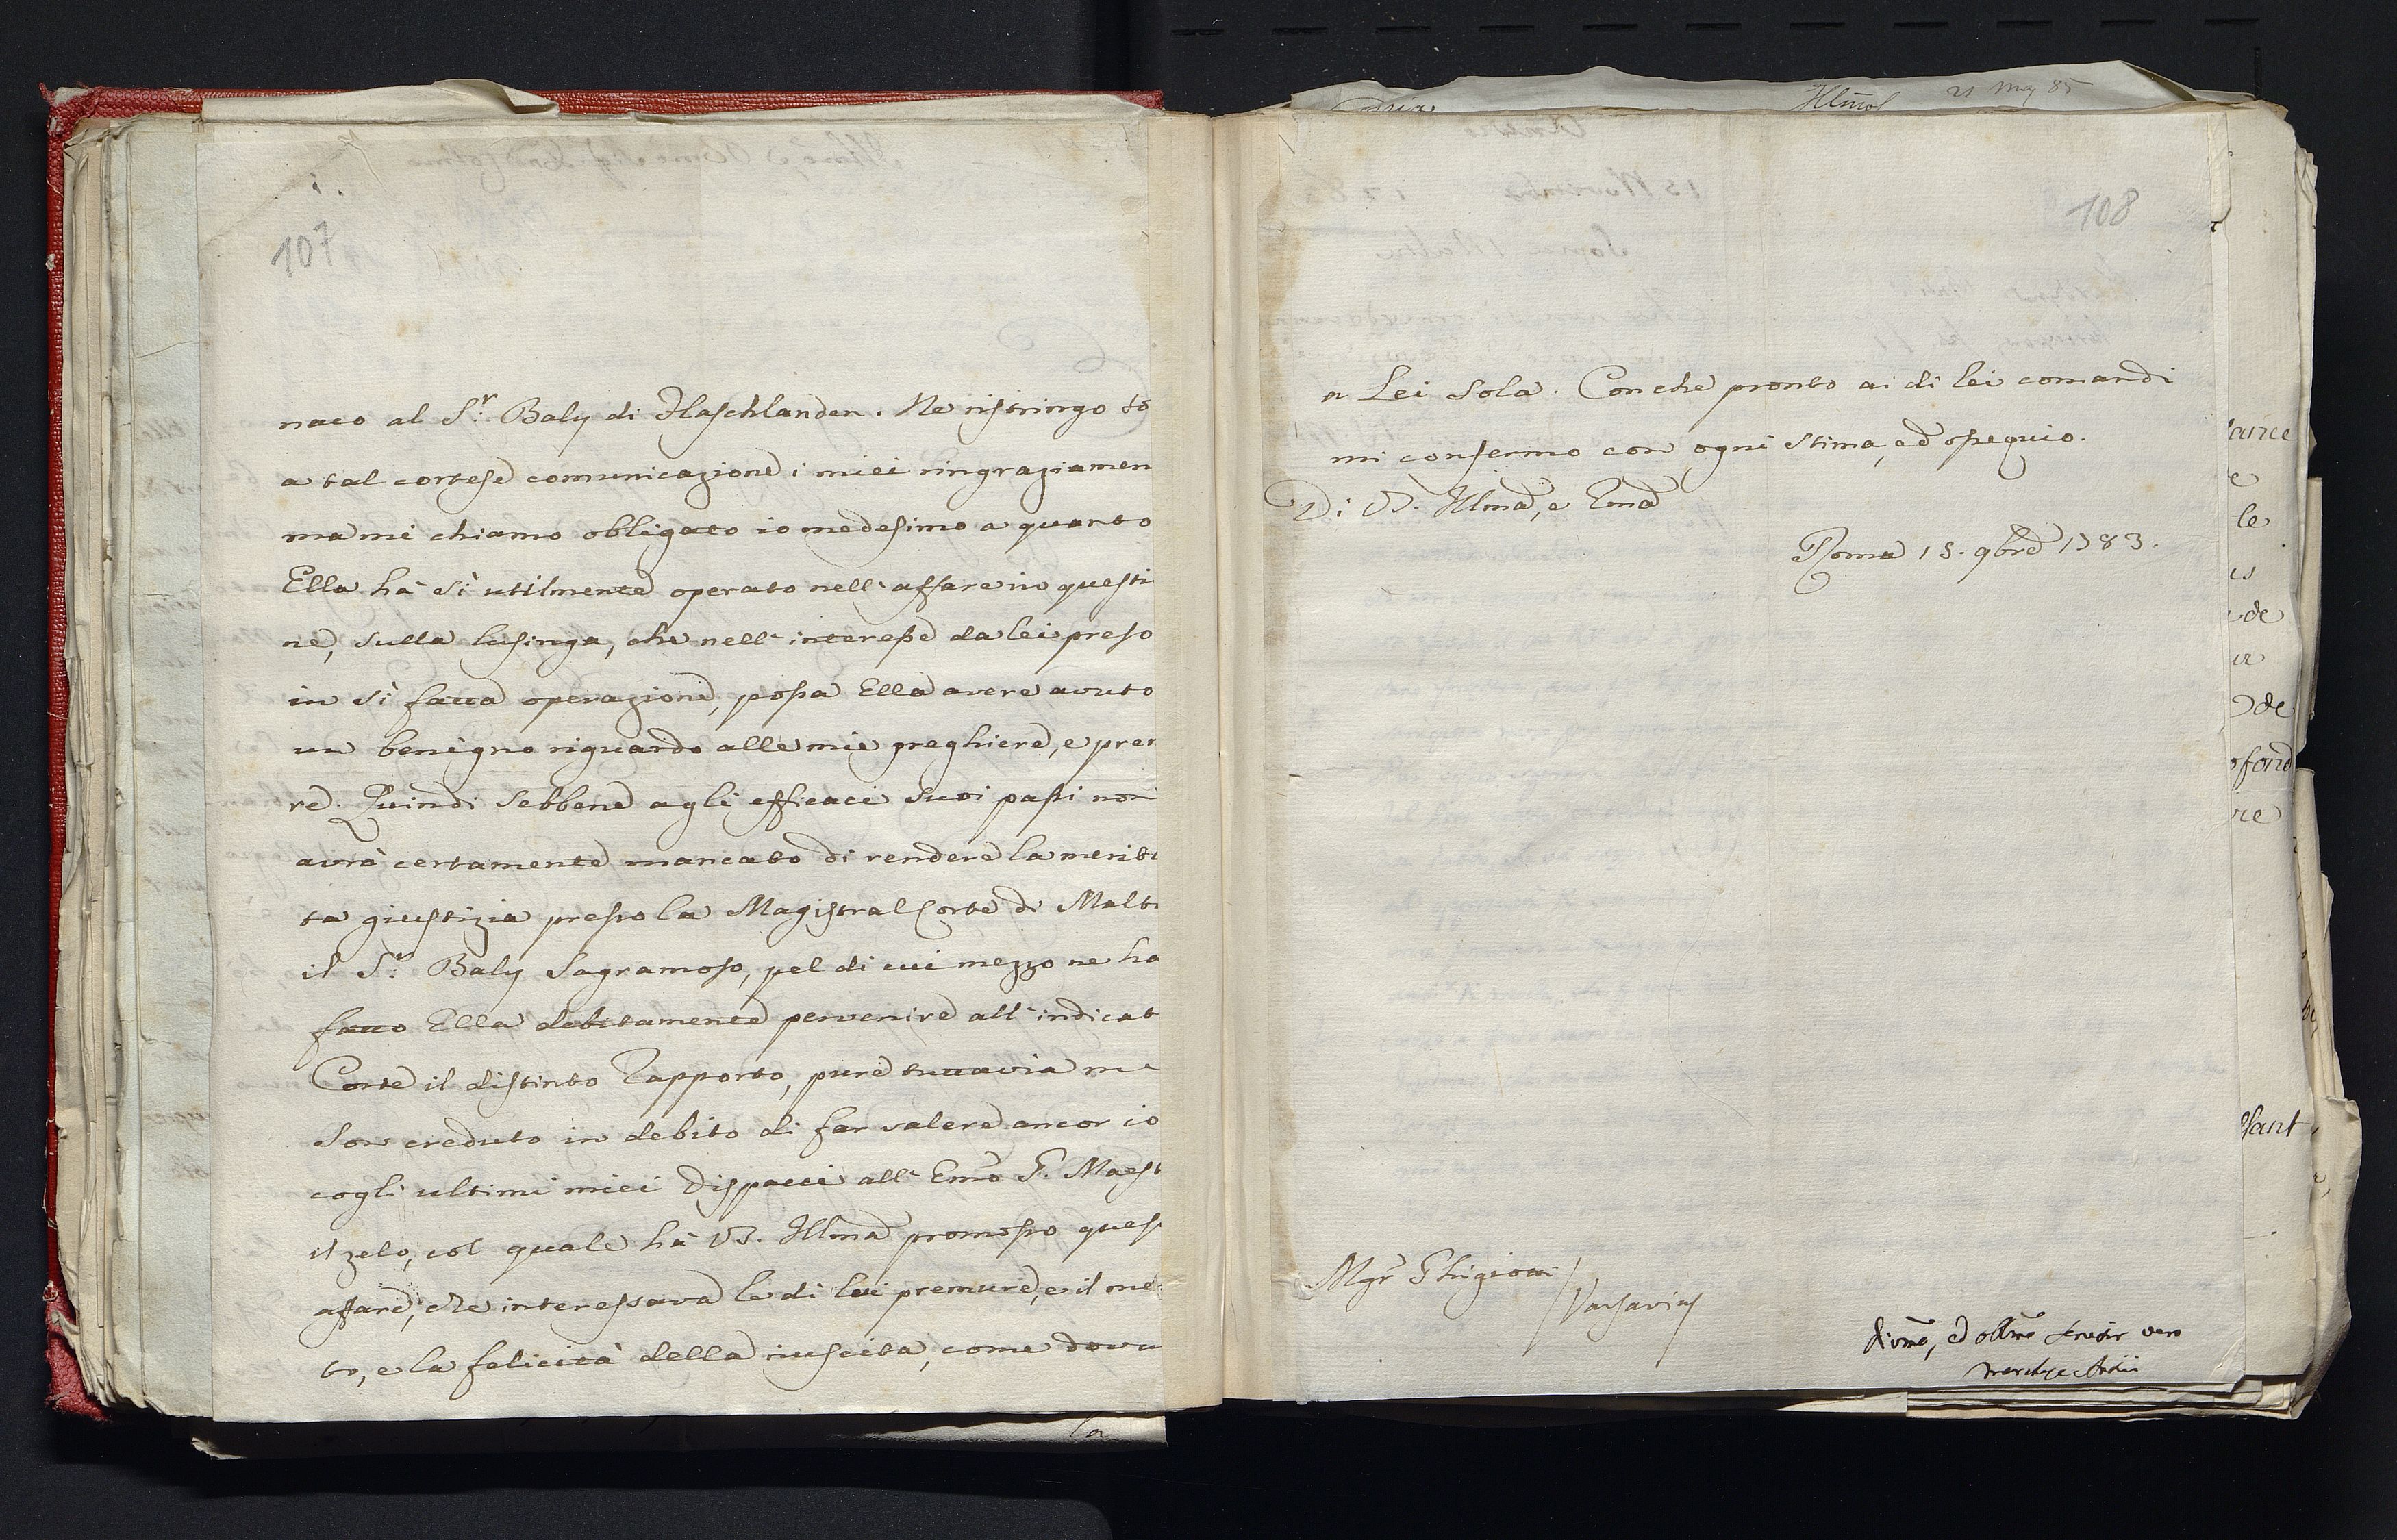 107
naco al S.r Baly di Flaschlanden. Ne ristringo to
a tal cortese comunicazione i miei ringraziamen
ma mi chiamo obligato io medesimo a quanto
Ella hà sì utilmente operato nell'affare in questi
ne, sulla lusinga, che nell'interesse da lei preso
in sì fatta operazione, possa Ella avere avuto
un benigno riguardo alle mie preghiere, e prem
re. Quindi sebbene agli efficaci suoi passi non
avrà certamente mancato di rendere la merita
ta giustizia presso la Magistral Corte di Malta
il S.r Baly Sagramoso, pel di cui mezzo ne ha
fatto Ella debitamente pervenire all'indicat
Corte il distinto rapporto, pure tuttavia me
son creduto in debito di far valere ancor io
cogli ultimi miei dispacci all'Emo G. Maest
il zelo, col quale hà VS. Illma promosso quest
affare, che interessava le di lei premure, e il me
to, e la felicità della riuscita, come dovu
la
Illmo
21 May 85
108
a Lei sola. Con che pronto ai di lei comandi
mi confermo con ogni stima, ed ossequio.
Di VS. Illma, e Rma
Roma 15. 9bre 1783.
Mgr Ghigiotti / Varsavia
divmo, ed obblmo servitor vero